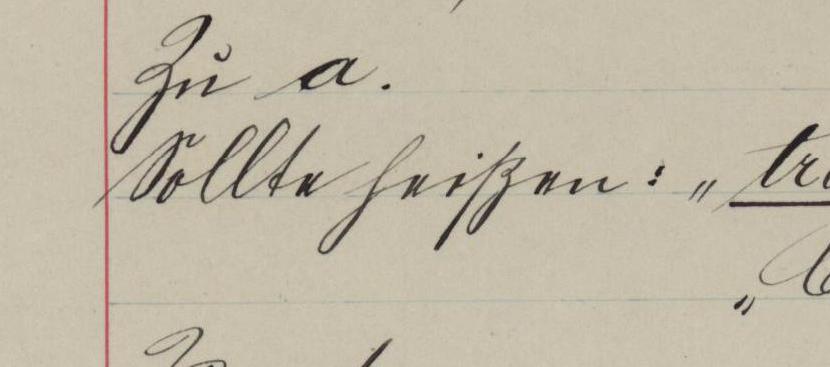 Zu a.
Sollte heißen: „
„